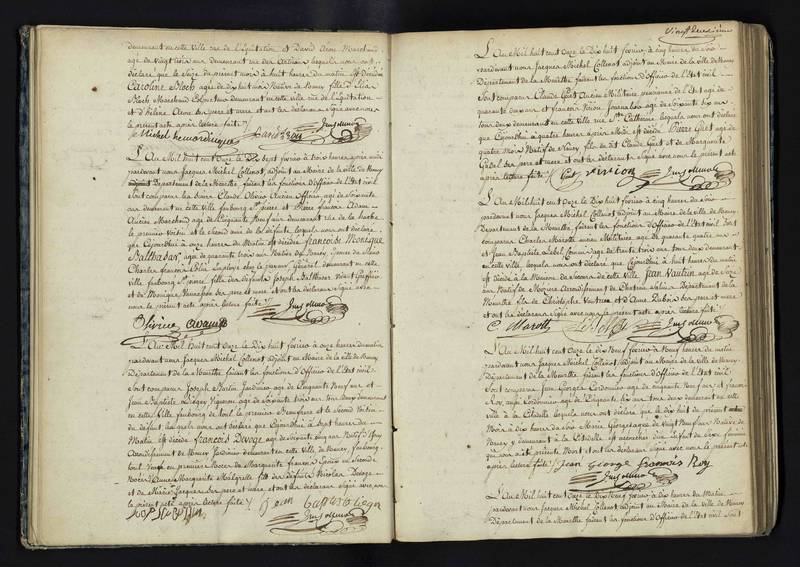 demeurant en cette Ville rue de l'Equitation et David Aron Marchand
agé de vingt trois ans demeurant rue des Artisans lesquels nous ont
déclaré que le Seize du présent mois à huit heures du matin est décédée
Caroline Bloch agée de dix huit mois Native de Nancy fille d'Elias
Bloch Marchand Colporteur demeurant en cette Ville rue de l'Equitation
et d'hélène Aron ses père et mère et ont les déclarans signé avec nous
le présent acte après lecture faite
L'An Mil huit cent Onze Le Dix Sept février à trois heures après midi
pardevant nous Jacques Michel Collenot, adjoint au Maire de la ville de Nancy
Département de la Meurthe, faisant les fonctions d'Officier de l'Etat civil
Sont comparus les Sieurs Claude Olivier Ancien Officier, agé de soixante
ans demeurant en cette Ville faubourg St pierre et Pierre francois Adam
Ancien Marchand agé de Cinquante Neuf ans demeurant rue de la hache
le premier Voisin et le second ami de la défunte lesquels nous ont déclaré
que Cejourdhui à onze heures du Matin est décédée francoise Monique
Balthasar, agée de quarante trois Native de Nancy, femme de Sieur
Charles francois employé chez le payeur Général demeurant en cette
ville faubourg St pierre fille des défunts Joseph Balthasar Greffier
et de Monique ses père et mère et ont les déclarans signé avec
nous le présent acte après lecture faite
Olivier adam
L'An Mil huit cent Onze Le Dix huit février à onze heures du matin
pardevant nous Jacques Michel Collenot adjoint au Maire de la ville de Nancy
Département de la Meurthe, faisant les fonctions d'Officier de l'Etat civil
Sont comparus Joseph Bertin Jardinier agé de Cinquante Neuf ans et
Jean Baptiste Liégey Vigneron agé de soixante trois ans tous deux demeurant
en cette Ville faubourg de toul le premier Beaufrère et le second Voisin
du défunt lesquels nous ont déclaré que Cejourdhui à Sept heures du
Matin est décédé francois Devoge agé de soixante cinq ans Natif d'
Arrondissement de Nancy Jardinier demeurant en cette ville de Nancy, faubourg
toul Veuf en premières Noces de Marguerite francois en seconde
Noces d'Anne Marguerite fils des défunts Nicolas Devoge
et de Marie Jacques ses père et mère et ont les déclarans signé avec nous
le présent acte après lecture faite
Jean Baptiste Liegey
Vingt deuxième
L'An Mil huit cent Onze Le Dix huit février à cinq heures du soir
pardevant nous Jacques Michel Collenot adjoint au Maire de la ville de Nancy
Département de la Meurthe faisant les fonctions d'Officier de l'Etat civil
Sont comparus Claude Gret Ancien Militaire pensionné de l'Etat agé de
quarante deux ans et francois Virion Journalier agé de soixante dix ans
tous deux demeurant en cette ville rue Ste Catherine lesquels nous ont déclaré
que Cejourdhui à quatre heures après Midi est décédé Pierre Gret agé de
quatre mois Natif de Nancy fils du dit Claude Gret et de Marguerite
Gadel ses père et mère et ont les déclarans signé avec nous le présent acte
après lecture faite
Virion
L'An Mil huit cent Onze Le Dix huit février à cinq heures du soir
pardevant nous Jacques Michel Collenot adjoint au Maire de la ville de Nancy
Département de la Meurthe faisant les fonctions d'Officier de l'Etat civil Sont
comparus Charles Marotte ancien Militaire, agé de quarante quatre ans
et Jean Baptiste Lebel Commis agé de trente trois ans tous deux demeurant
en cette ville, lesquels nous ont déclaré que Cejourdhui à huit heures du matin
est décédé à la Maison de secours de cette Ville Jean Vautrin agé de
ans Natif de Arrondissement de Chateau Salins Département de la
Meurthe fils de Christophe Vautrin et d'Anne Dubois ses père et mère
et ont les déclarans signé avec nous le présent acte après lecture faite
C. Marotte
L'An Mil huit cent Onze Le Dix Neuf février à Neuf heures du matin
pardevant nous Jacques Michel Collenot, adjoint au Maire de la ville de Nancy
Département de la Meurthe, faisant les fonctions d'Officier de l'Etat civil
Sont comparus Jean George Cordonnier agé de cinquante Neuf ans et francois
Roy, aussi Cordonnier agé de Cinquante six ans tous deux demeurant en cette
ville à la Citadelle lesquels nous ont déclaré que le dix huit du présent
Mois à dix heures du soir Marie George agée de vingt Neuf ans Native de
Nancy y demeurant à la Citadelle est accouchée d'un Enfant du sexe féminin
qui est Mort et ont les déclarans signé avec nous le présent acte
après lecture faite
jean george francois Roy
L'An Mil huit cent Onze Le Dix Neuf février à dix heures du Matin
pardevant nous Jacques Michel Collenot adjoint au Maire de la Ville de Nancy
Département de la Meurthe faisant les fonctions d'Officier de l'Etat civil Sont